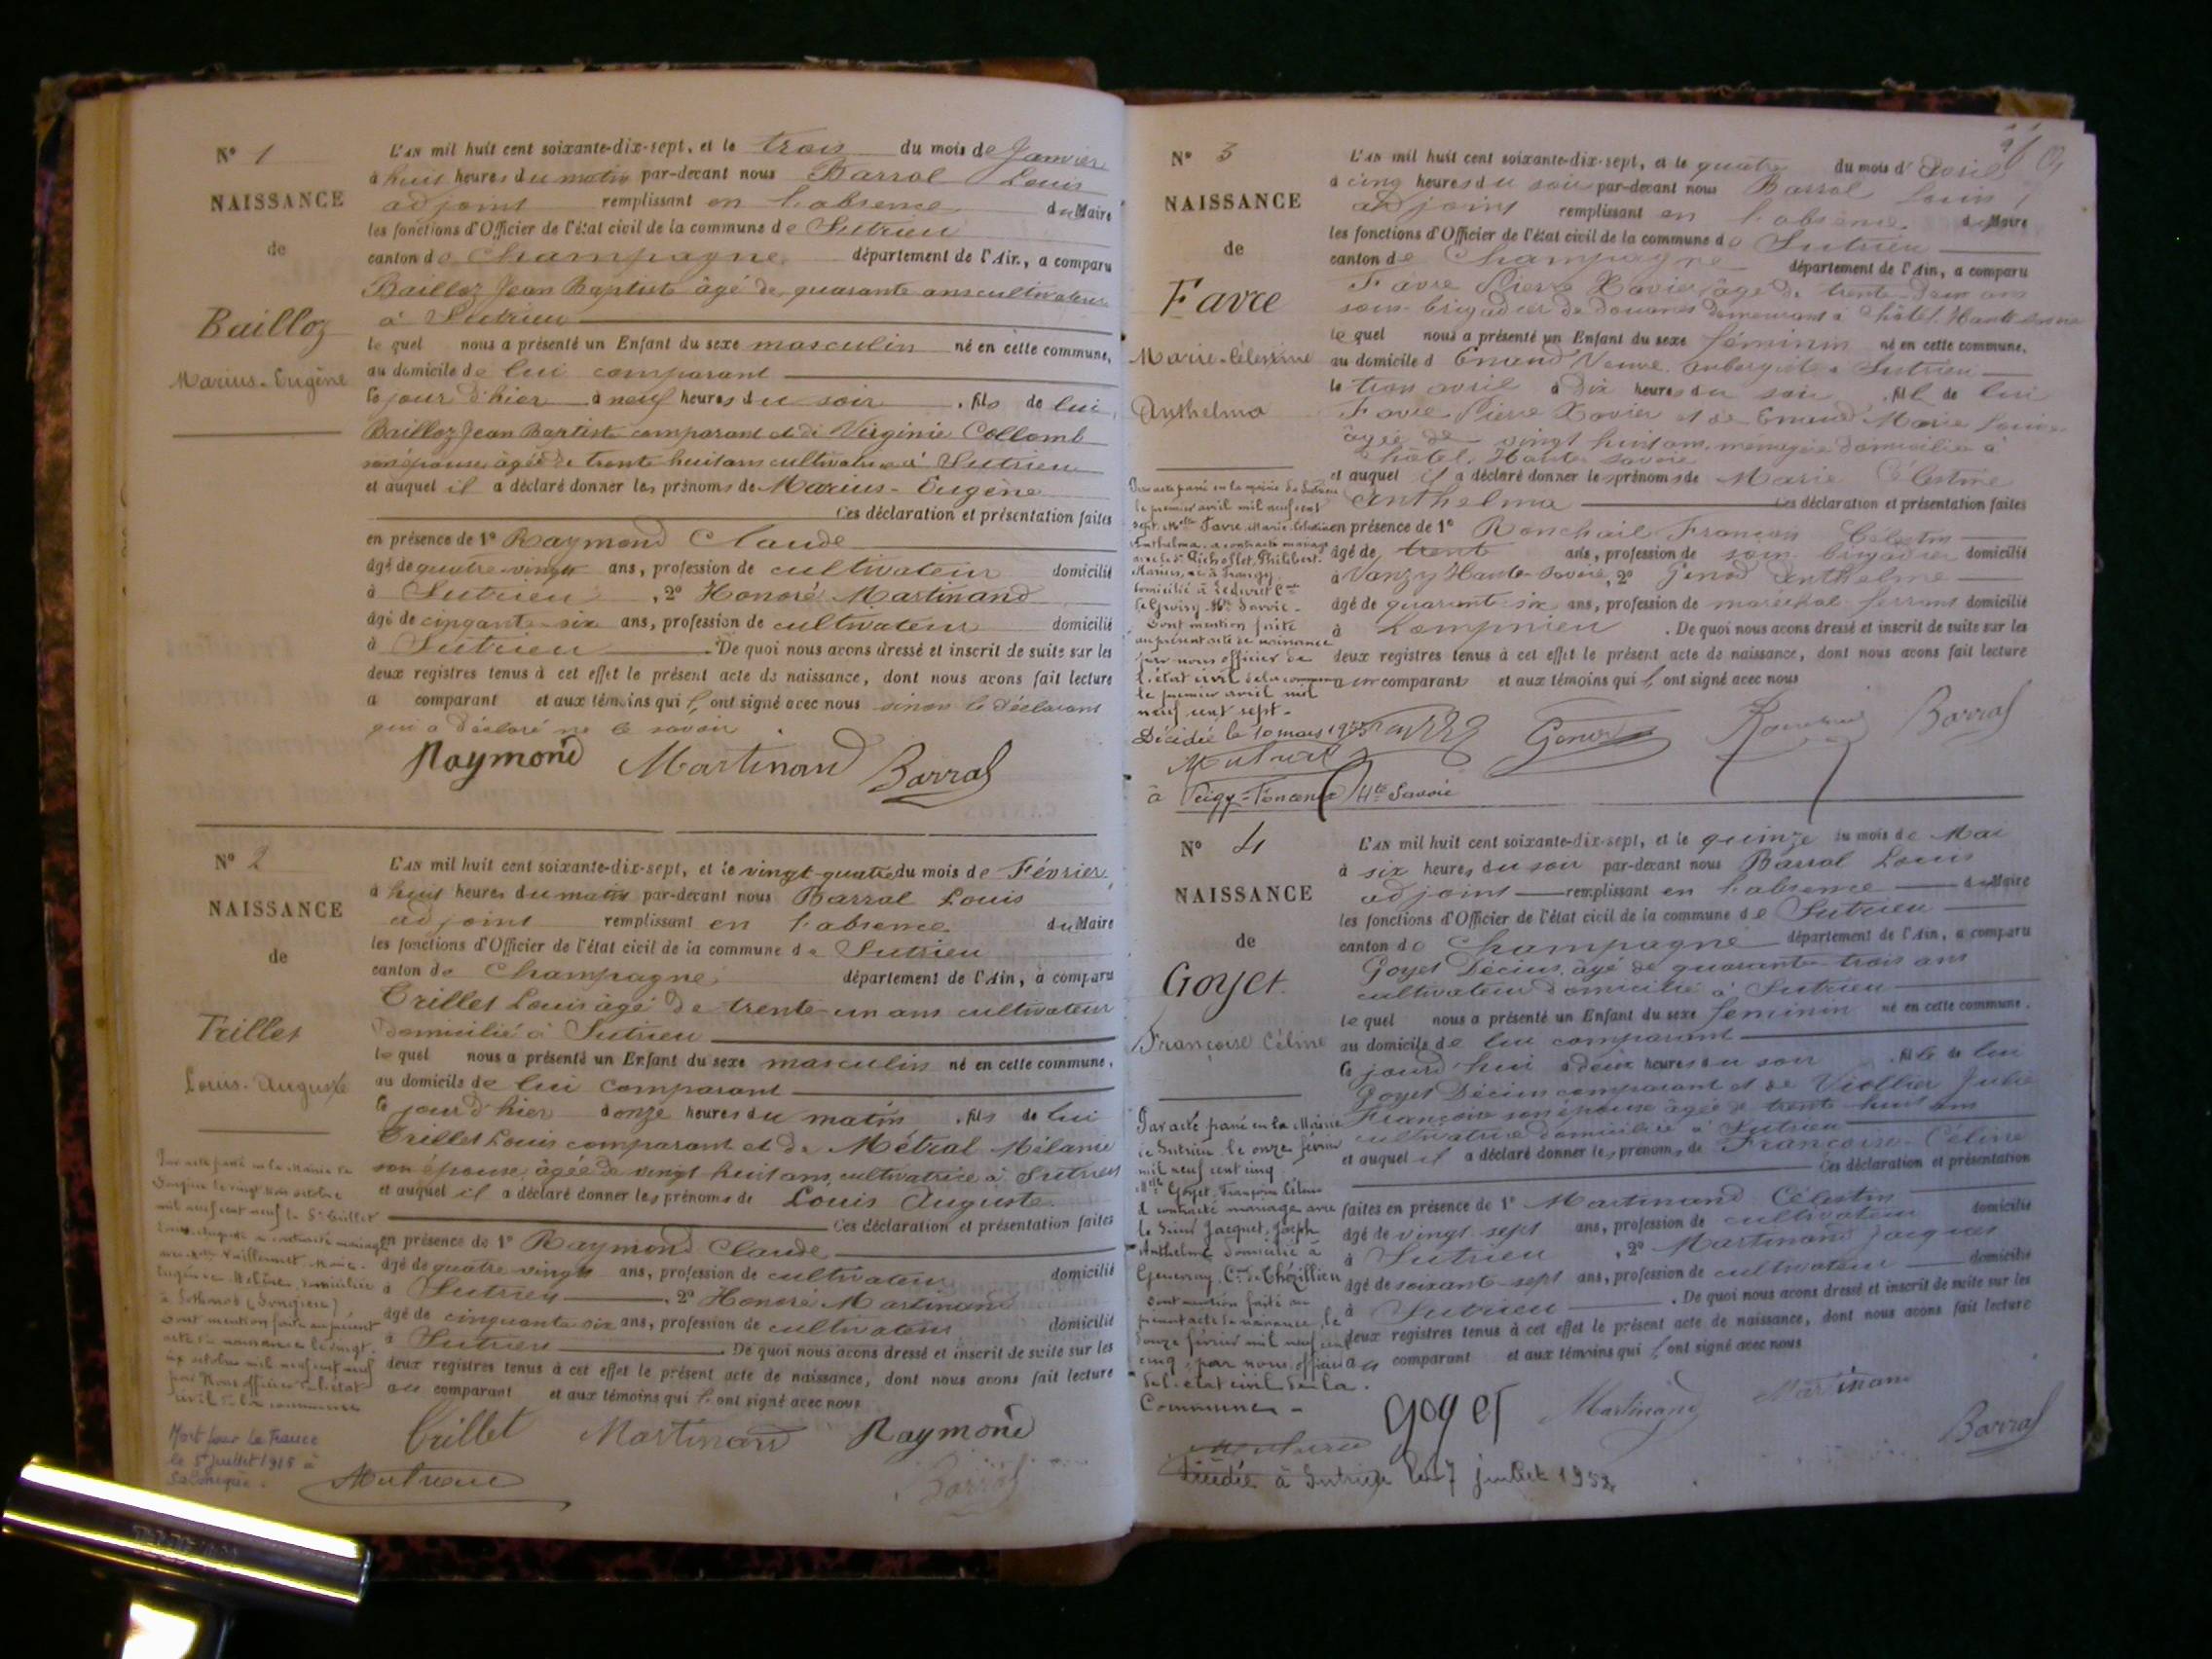 N° 1
NAISSANCE
de
Bailloz
Marius-Eugène
L'AN mil huit cent soixante-dix-sept, et le trois du mois de Janvier
à huit heures du matin par-devant nous Barral Louis
adjoint remplissant en l'absence du Maire
les fonctions d'Officier de l'état civil de la commune de Sutrieu
canton de Champagne département de l'Ain, a comparu
Bailloz Jean Baptiste âgé de quarante ans cultivateur
à Sutrieu
lequel nous a présenté un Enfant du sexe masculin né en cette commune,
au domicile de lui comparant
le jour d'hier à neuf heures du soir, fils de lui
Bailloz Jean Baptiste comparant et de Virginie Collomb
son épouse âgée de trente huit ans cultivatrice à Sutrieu
et auquel il a déclaré donner les prénoms de Marius-Eugène
Ces déclaration et présentation faites
en présence de 1° Raymond Claude
âgé de quatre vingts ans, profession de cultivateur domicilié
à Sutrieu, 2° Honoré Martinand
âgé de cinquante-six ans, profession de cultivateur domicilié
à Sutrieu. De quoi nous avons dressé et inscrit de suite sur les
deux registres tenus à cet effet le présent acte de naissance, dont nous avons fait lecture
a comparant et aux témoins qui l'ont signé avec nous sinon le déclarant
qui a déclaré ne le savoir
Raymond Martinand Barral
N° 2
NAISSANCE
de
Trillet
Louis-Auguste
L'AN mil huit cent soixante-dix-sept, et le vingt-quatre du mois de Février,
à huit heures du matin par-devant nous Barral Louis
adjoint remplissant en l'absence du Maire
les fonctions d'Officier de l'état civil de la commune de Sutrieu
canton de Champagne département de l'Ain, a comparu
Trillet Louis âgé de trente-un ans cultivateur
domicilié à Sutrieu
lequel nous a présenté un Enfant du sexe masculin né en cette commune,
au domicile de lui comparant
le jour d'hier à onze heures du matin, fils de lui
Trillet Louis comparant et de Métral Mélanie
son épouse, âgée de vingt huit ans, cultivatrice à Sutrieu
et auquel il a déclaré donner les prénoms de Louis Auguste.
Ces déclaration et présentation faites
en présence de 1° Raymond Claude
âgé de quatre vingts ans, profession de cultivateur domicilié
à Sutrieu, 2° Honoré Martinand
âgé de cinquante six ans, profession de cultivateur domicilié
à Sutrieu. De quoi nous avons dressé et inscrit de suite sur les
deux registres tenus à cet effet le présent acte de naissance, dont nous avons fait lecture
au comparant et aux témoins qui l'ont signé avec nous
Trillet Martinand Raymond
Barral
Par acte passé en la Mairie de
Songieu le vingt octobre
mil neuf cent neuf le Sr Trillet
Louis Auguste a contracté mariage
avec
à Lothonod (Songieu)
Dont mention faite au présent
acte de naissance le vingt
octobre mil neuf cent neuf
par Nous officier de l'état
civil de la commune
Mort pour la France
le 5 juillet 1915 à
Salonique.
N° 3
NAISSANCE
de
Favre
Marie-Célestine
Anthelma
L'AN mil huit cent soixante-dix-sept, et le quatre du mois d'Avril
à cinq heures du soir par-devant nous Barral Louis,
adjoint remplissant en l'absence du Maire
les fonctions d'Officier de l'état civil de la commune de Sutrieu
canton de Champagne département de l'Ain, a comparu
Favre Pierre Xavier âgé de trente-deux ans
sous-brigadier de douanes demeurant à Châtel Haute Savoie
lequel nous a présenté un Enfant du sexe féminin né en cette commune,
au domicile d'Enaud Veuve, aubergiste à Sutrieu
le trois avril à dix heures du soir, fille de lui
Favre Pierre Xavier et de Enaud Marie Louise
âgée de vingt huit ans, ménagère domiciliée à
Châtel, Haute Savoie
et auquel il a déclaré donner les prénoms de Marie Célestine
Anthelma Ces déclaration et présentation faites
en présence de 1° Ronchail François Célestin
âgé de trente ans, profession de sous brigadier domicilié
à Vanzy Haute-Savoie, 2° Genod Anthelme
âgé de quarante six ans, profession de maréchal ferrant domicilié
à Lompnieu. De quoi nous avons dressé et inscrit de suite sur les
deux registres tenus à cet effet le présent acte de naissance, dont nous avons fait lecture
au comparant et aux témoins qui l'ont signé avec nous
Genod Barral
Par acte passé en la mairie de Sutrieu
le premier avril mil neuf cent
sept, Melle Favre Marie Célestine
Anthelma, a contracté mariage
avec le Sr Philibert
Marius, né à Frangy
domicilié à
Hte Savoie -
Dont mention faite
au présent acte de naissance
par nous officier de
l'état civil de la commune
le premier avril mil
neuf cent sept -
Décédée le 10 mars
à Hte Savoie
N° 4
NAISSANCE
de
Goyet
Françoise Céline
L'AN mil huit cent soixante-dix-sept, et le quinze du mois de Mai
à six heures du soir par-devant nous Barral Louis
adjoint remplissant en l'absence du Maire
les fonctions d'Officier de l'état civil de la commune de Sutrieu
canton de Champagne département de l'Ain, a comparu
Goyet Décius, âgé de quarante-trois ans
cultivateur domicilié à Sutrieu
lequel nous a présenté un Enfant du sexe féminin né en cette commune,
au domicile de lui comparant
le jourd'hui à deux heures du soir, fille de lui
Goyet Décius comparant et de Viollier Julie
Françoise son épouse âgée de trente huit ans
cultivatrice domiciliée à Sutrieu
et auquel il a déclaré donner les prénoms de Françoise-Céline
Ces déclaration et présentation
faites en présence de 1° Martinand Célestin
âgé de vingt sept ans, profession de cultivateur domicilié
à Sutrieu, 2° Martinand Jacques
âgé de soixante-sept ans, profession de cultivateur domicilié
à Sutrieu. De quoi nous avons dressé et inscrit de suite sur les
deux registres tenus à cet effet le présent acte de naissance, dont nous avons fait lecture
au comparant et aux témoins qui l'ont signé avec nous
Goyet Martinand Martinand
Barral
Par acte passé en la Mairie
de Sutrieu le onze février
mil neuf cent cinq
Melle Goyet, Françoise Céline
a contracté mariage avec
le Sieur Jacquet, Joseph
Anthelme domicilié à
Genevray, Cne de Thézillieu
dont mention faite au
présent acte de naissance, le
douze février mil neuf cent
cinq, par nous officier
de l'état civil de la
Commune -
Décédée à Sutrieu le 7 juillet 1952